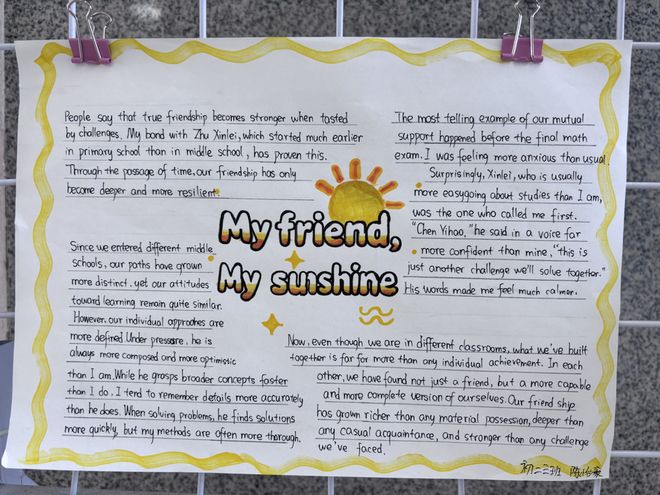 People say that true friendship becomes stronger when tasted
by challenges. My bond with Zhu Xinlei, which started much earlier
in primary school than in middle school, has proven this.
Through the passage of time, our friendship has only
become deeper and more resilient.
My friend,
My sunshine
Since we entered different middle
schools, our paths have grown
more distinct. yet our attitudes
toward learning remain quite similar.
However. our individual approches are
more defined. Under pressure, he is
always more composed and more optimistic
than I am. While he grasps broader concepts faster
than I do. I tend to remember details more accurately
than he does. When solving problems, he finds solutions
more quickly, but my methods are often more thorough.
The most telling example of our mutual
support happened before the final math
exam. I was feeling more anxious than usual.
Surprisingly, Xinlei, who is usually
more easygoing about studies than I am,
was the one who called me first.
"Chen Yihao," he said in a voice far
more confident than mine, "this is
just another challenge we'll solve together."
His words made me feel much calmer.
Now, even though we are in different classrooms, what we've built
together is far far more than any individual achievement. In each
other, we have found not just a friend, but a more capable
and more complete version of ourselves. Our friend ship
has grown richer than any material possession, deeper than
any casual acquaintance, and stronger than any challenge
we've faced.
初二三班 陈